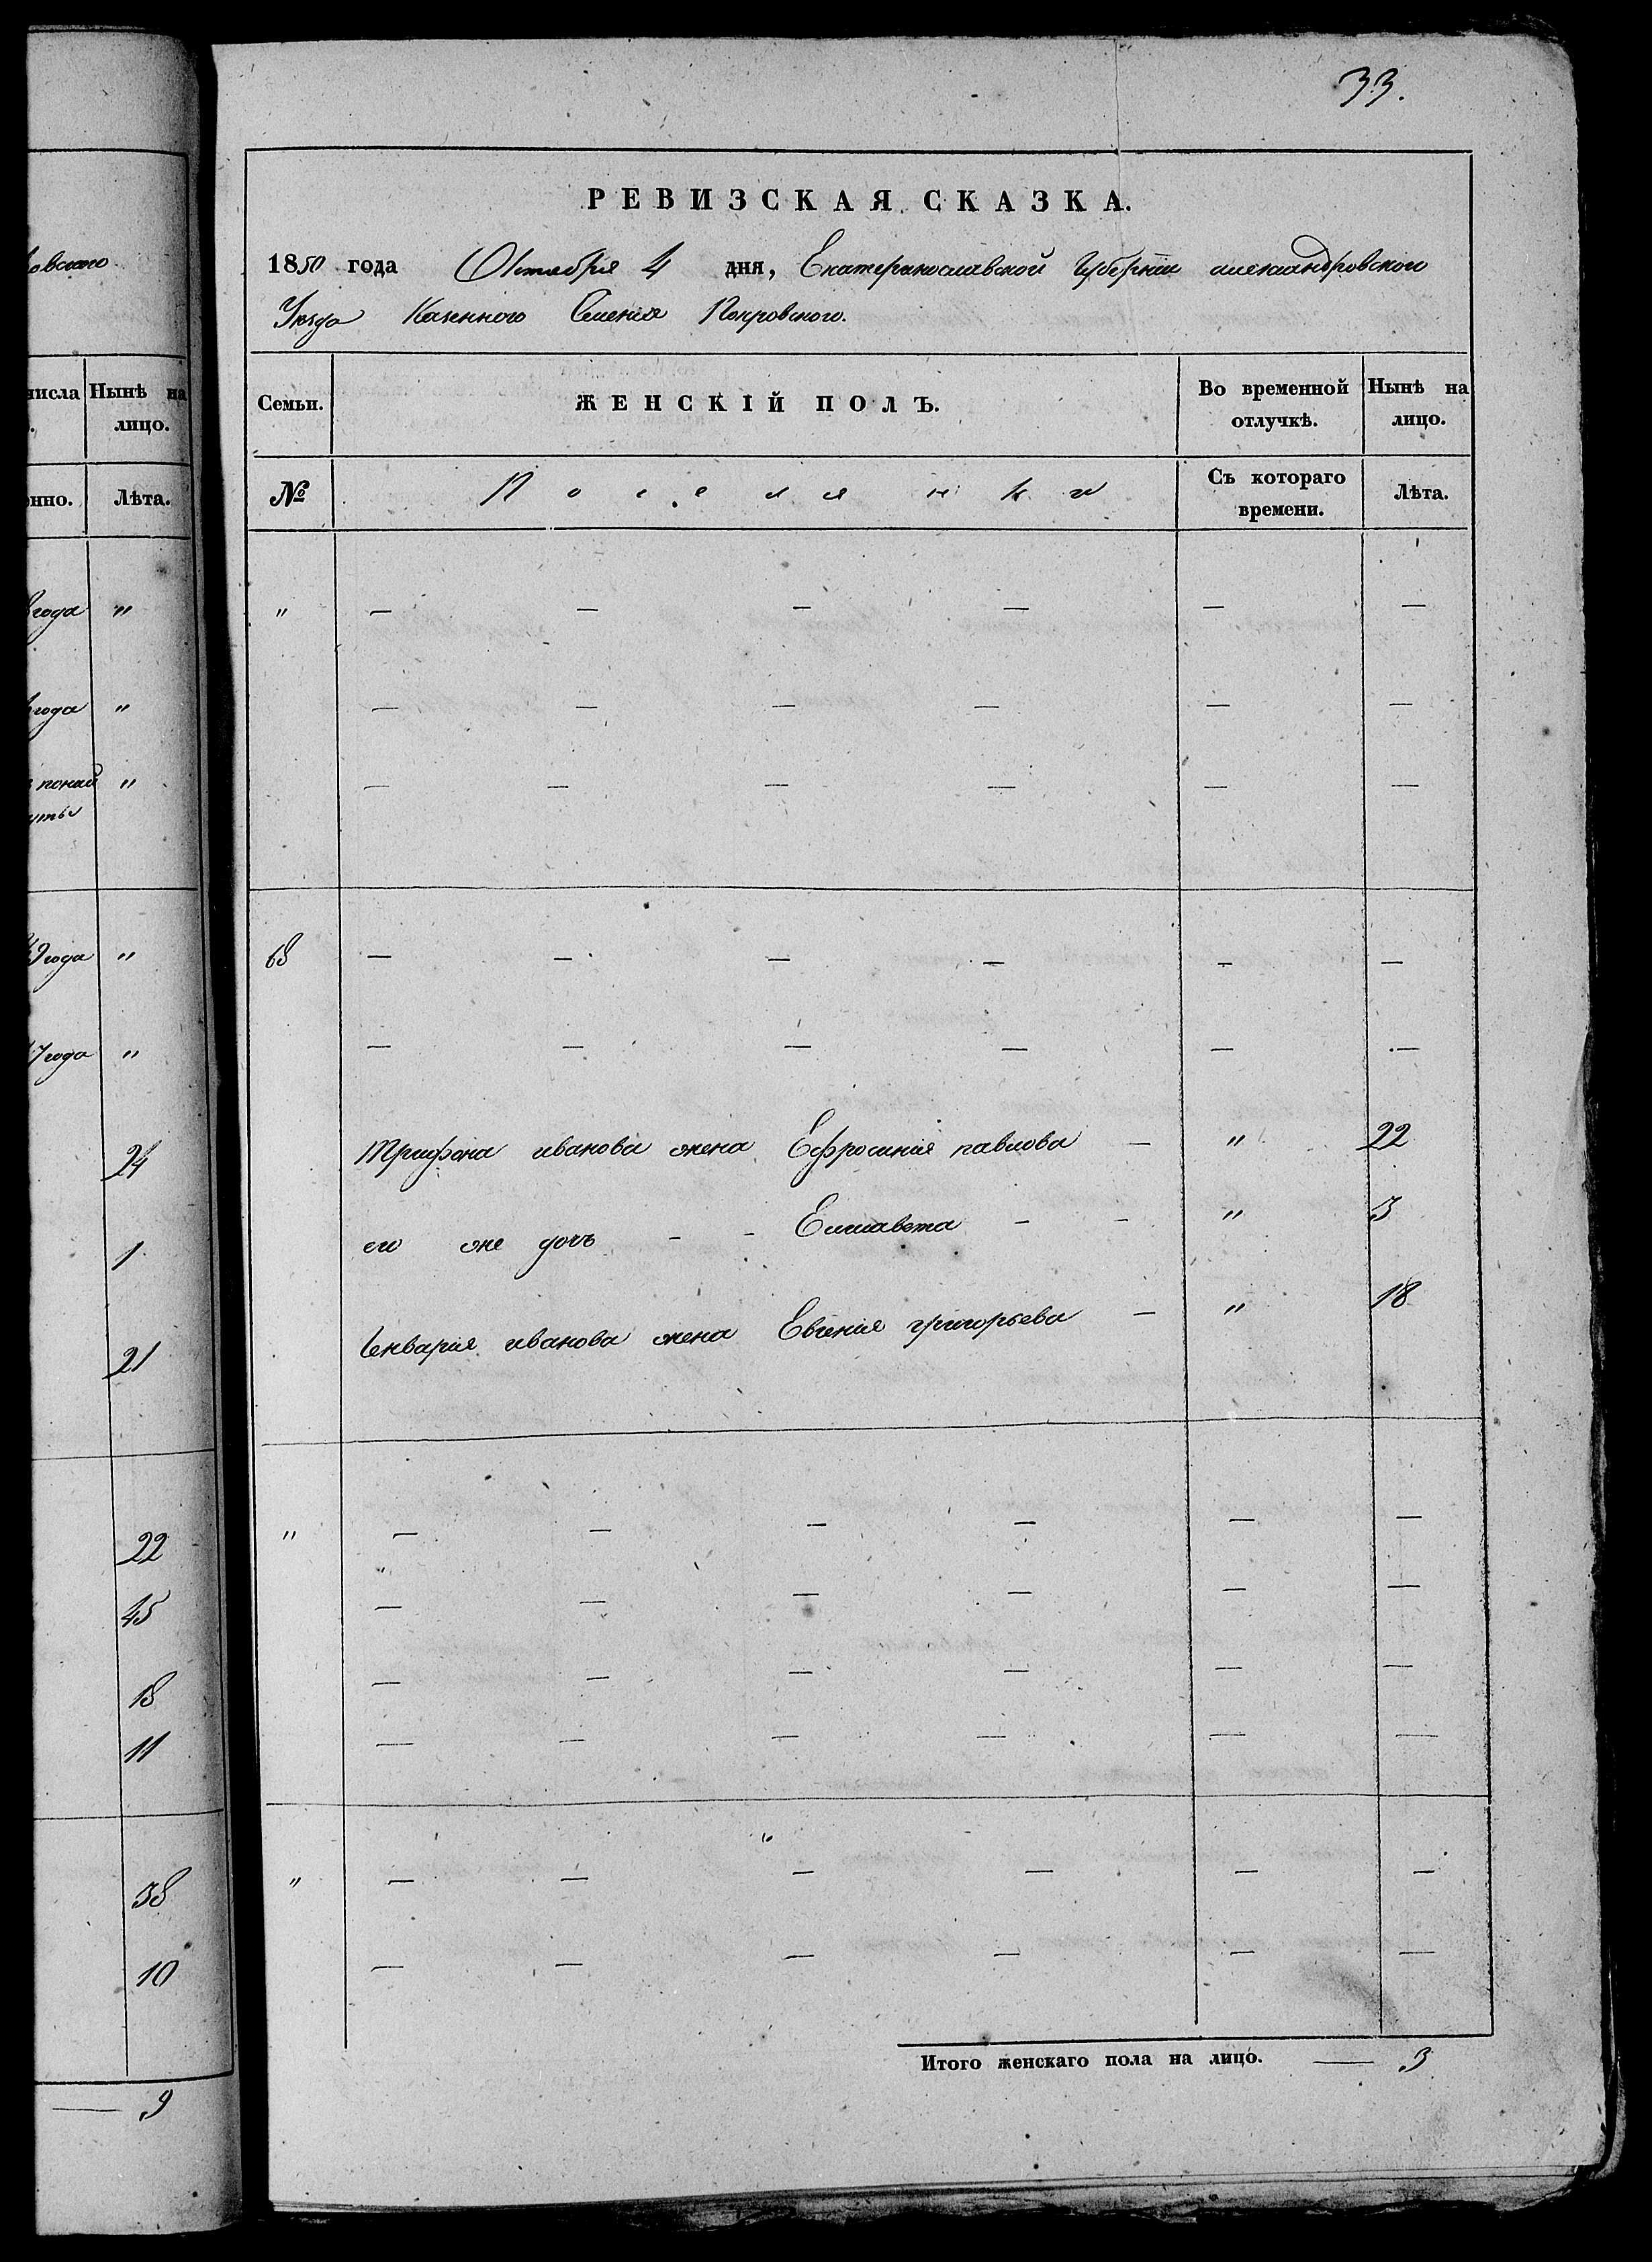 33.
РЕВИЗСКАЯ СКАЗКА.
1850 года Октября 4 дня, Екатеринославской Губернiи александровского
Уезда Казенного Селенiя Покровского.
ловского
числа Нынѣ на лицо.
Семьи.
ЖЕНСКIЙ ПОЛЪ.
Во временной отлучкѣ.
Нынѣ на лицо.
нно. Лѣта.
№
Поселянки
Съ котораго времени.
Лѣта.
года " " — — — — — —
года " — — — — — —
" — — — — — —
9 года " 68 — — — — — —
7 года " — — — — — —
24 Трифона иванова жена Ефросинiя павлова — " 22
1 его же дочь — — Елисавета — — " 3
21 иванова жена Евгения григорьева — " 18
22 " — — — — — —
45 — — — — — —
18 — — — — — —
11 — — — — — —
38 " — — — — — —
10 — — — — — —
Итого женскаго пола на лицо. — 3
— 9